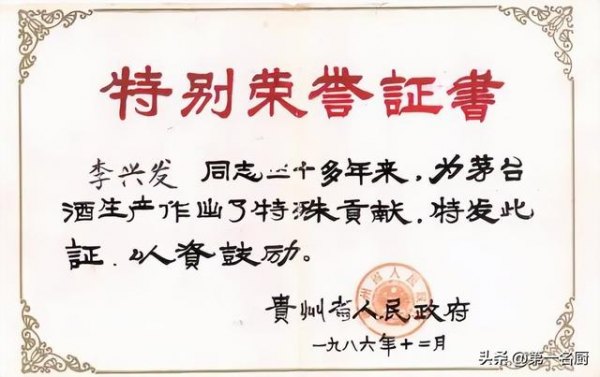 特别荣誉証書
李兴发 同志三十多年来，为茅台
酒生产作出了特殊貢献，特发此
証，以資鼓励。
貴州省人民政府
一九八六年十二月
头条 @第一名厨